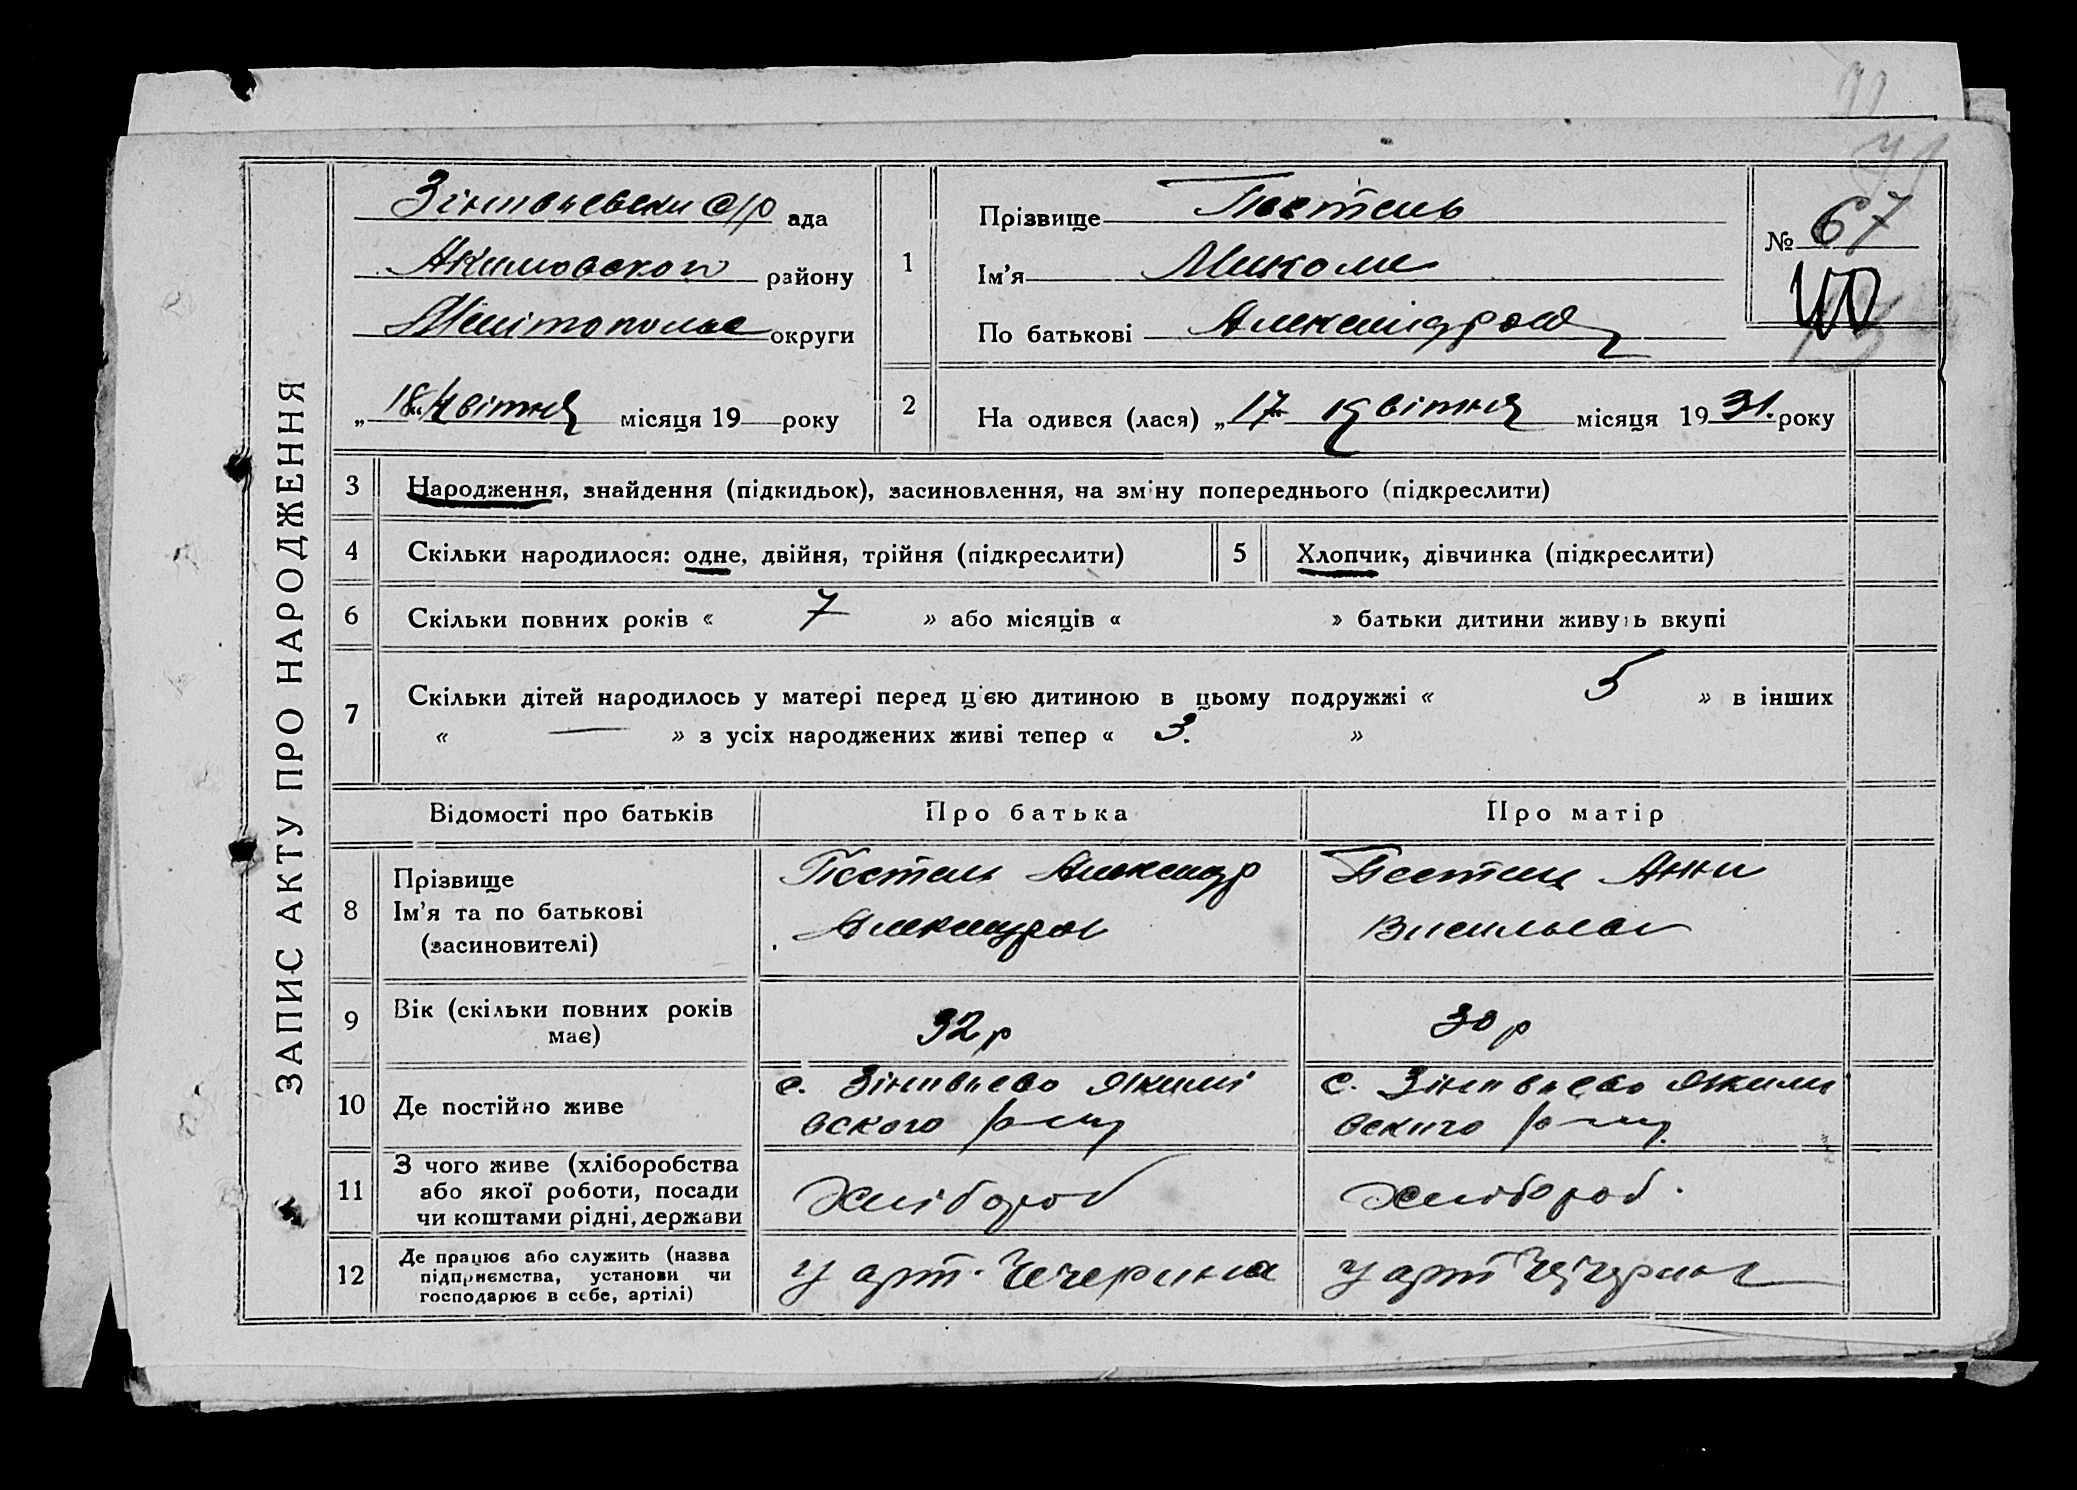 ЗАПИС АКТУ ПРО НАРОДЖЕННЯ
Зінтвьевски с/р ада
Акимовского району
Мелітопольс округи
„18“ Квітня місяця 19 року
1
Прізвище Пестель
Ім'я Микола
По батькові Александров
№ 67
40
2
На одився (лася) „17“ Квітня місяця 1931. року
3 Народження, знайдення (підкидьок), засиновлення, на зміну попереднього (підкреслити)
4 Скільки народилося: одне, двійня, трійня (підкреслити)
5 Хлопчик, дівчинка (підкреслити)
6 Скільки повних років « 7 » або місяців « » батьки дитини живуть вкупі
7 Скільки дітей народилось у матері перед цією дитиною в цьому подружжі « 5 » в інших
« — » з усіх народжених живі тепер « 3. »
Відомості про батьків Про батька Про матір
8 Прізвище
Ім'я та по батькові
(засиновителі)
Пестель Александр
Александров
Пестель Анна
Васильев
9 Вік (скільки повних років
має)
32 р
30 р
10 Де постійно живе
с. Зінтвьево Якимі
вского р-ну
с. Зінтвьево Якими
вского р-ну.
11 З чого живе (хліборобства
або якої роботи, посади
чи коштами рідні, держави
Хлібороб
Хлібороб.
12 Де працює або служить (назва
підприємства, установи чи
господарює в себе, артілі)
у арт. Чечерина
у арт Чечерина